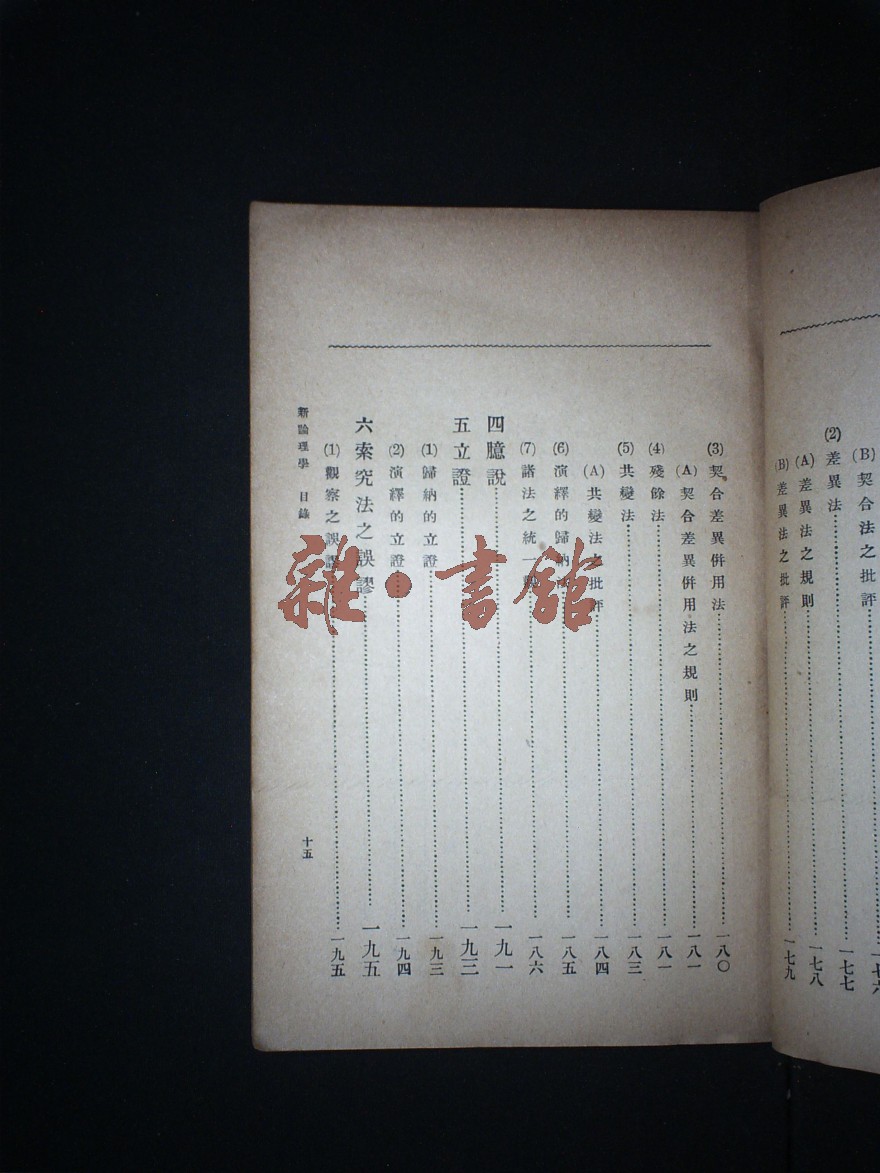 (B)契合法之批評……一七六
(2)差異法……一七七
(A)差異法之規則……一七八
(B)差異法之批評……一七九
(3)契合差異併用法……一八〇
(A)契合差異併用法之規則……一八一
(4)殘餘法……一八一
(5)共變法……一八三
(A)共變法之批評……一八四
(6)演繹的歸納法……一八五
(7)諸法之統一……一八六
四臆說……一九一
五立證……一九三
(1)歸納的立證……一九三
(2)演繹的立證……一九四
六索究法之誤謬……一九五
(1)觀察之誤謬……一九五
新論理學 目錄 十五
雜·書館